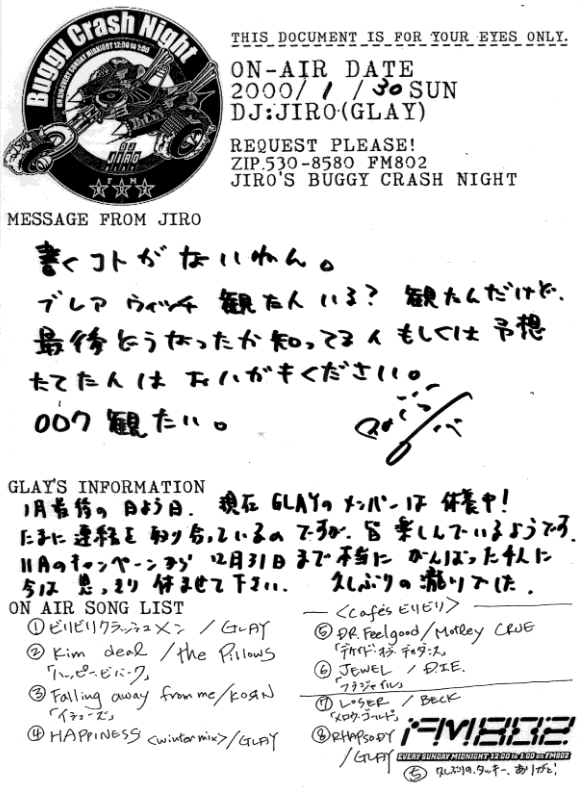 Buggy Crash Night
EVERY SUNDAY MIDNIGHT 12:00 to 1:00
DJ
JIRO
GLAY
THIS DOCUMENT IS FOR YOUR EYES ONLY.
ON-AIR DATE
2000/1/30 SUN
DJ:JIRO(GLAY)
REQUEST PLEASE!
ZIP.530-8580 FM802
JIRO'S BUGGY CRASH NIGHT
MESSAGE FROM JIRO
書くコトがないわん。
ブレア ウィッチ 観た人いる? 観たんだけど、
最後どうなったか知ってる人もしくは予想
たてた人は おハガキください。
007 観たい。
GLAY'S INFORMATION
1月最後の日よう日. 現在 GLAYのメンバーは 休養中!
たまに連絡を取り合っているのですが、皆楽しんでいるようです.
11月のキャンペーンから 12月31日まで本当に がんばった4人に
今は 思っきり 休ませて下さい. 久しぶりの瀧りでした.
ON AIR SONG LIST
①ビリビリクラッシュメン / GLAY
② Kim deal / the pillows
「ハッピー・ビバーク」
③ Falling away from me / KOЯN
「イシューズ」
④ HAPPINESS <winter mix> / GLAY
<Cafés ビリビリ>
⑤ DR. Feelgood / Motley CRUE
「デケイド・オブ・デカダンス」
⑥ JEWEL / D.I.E.
「フラジャイル」
⑦ LOSER / BECK
「メロウ・ゴールド」
⑧ RHAPSODY
/ GLAY
FM802
EVERY SUNDAY MIDNIGHT 12:00 to 1:00 on FM802
⑤ 久しぶりの、タッキー、ありがと!